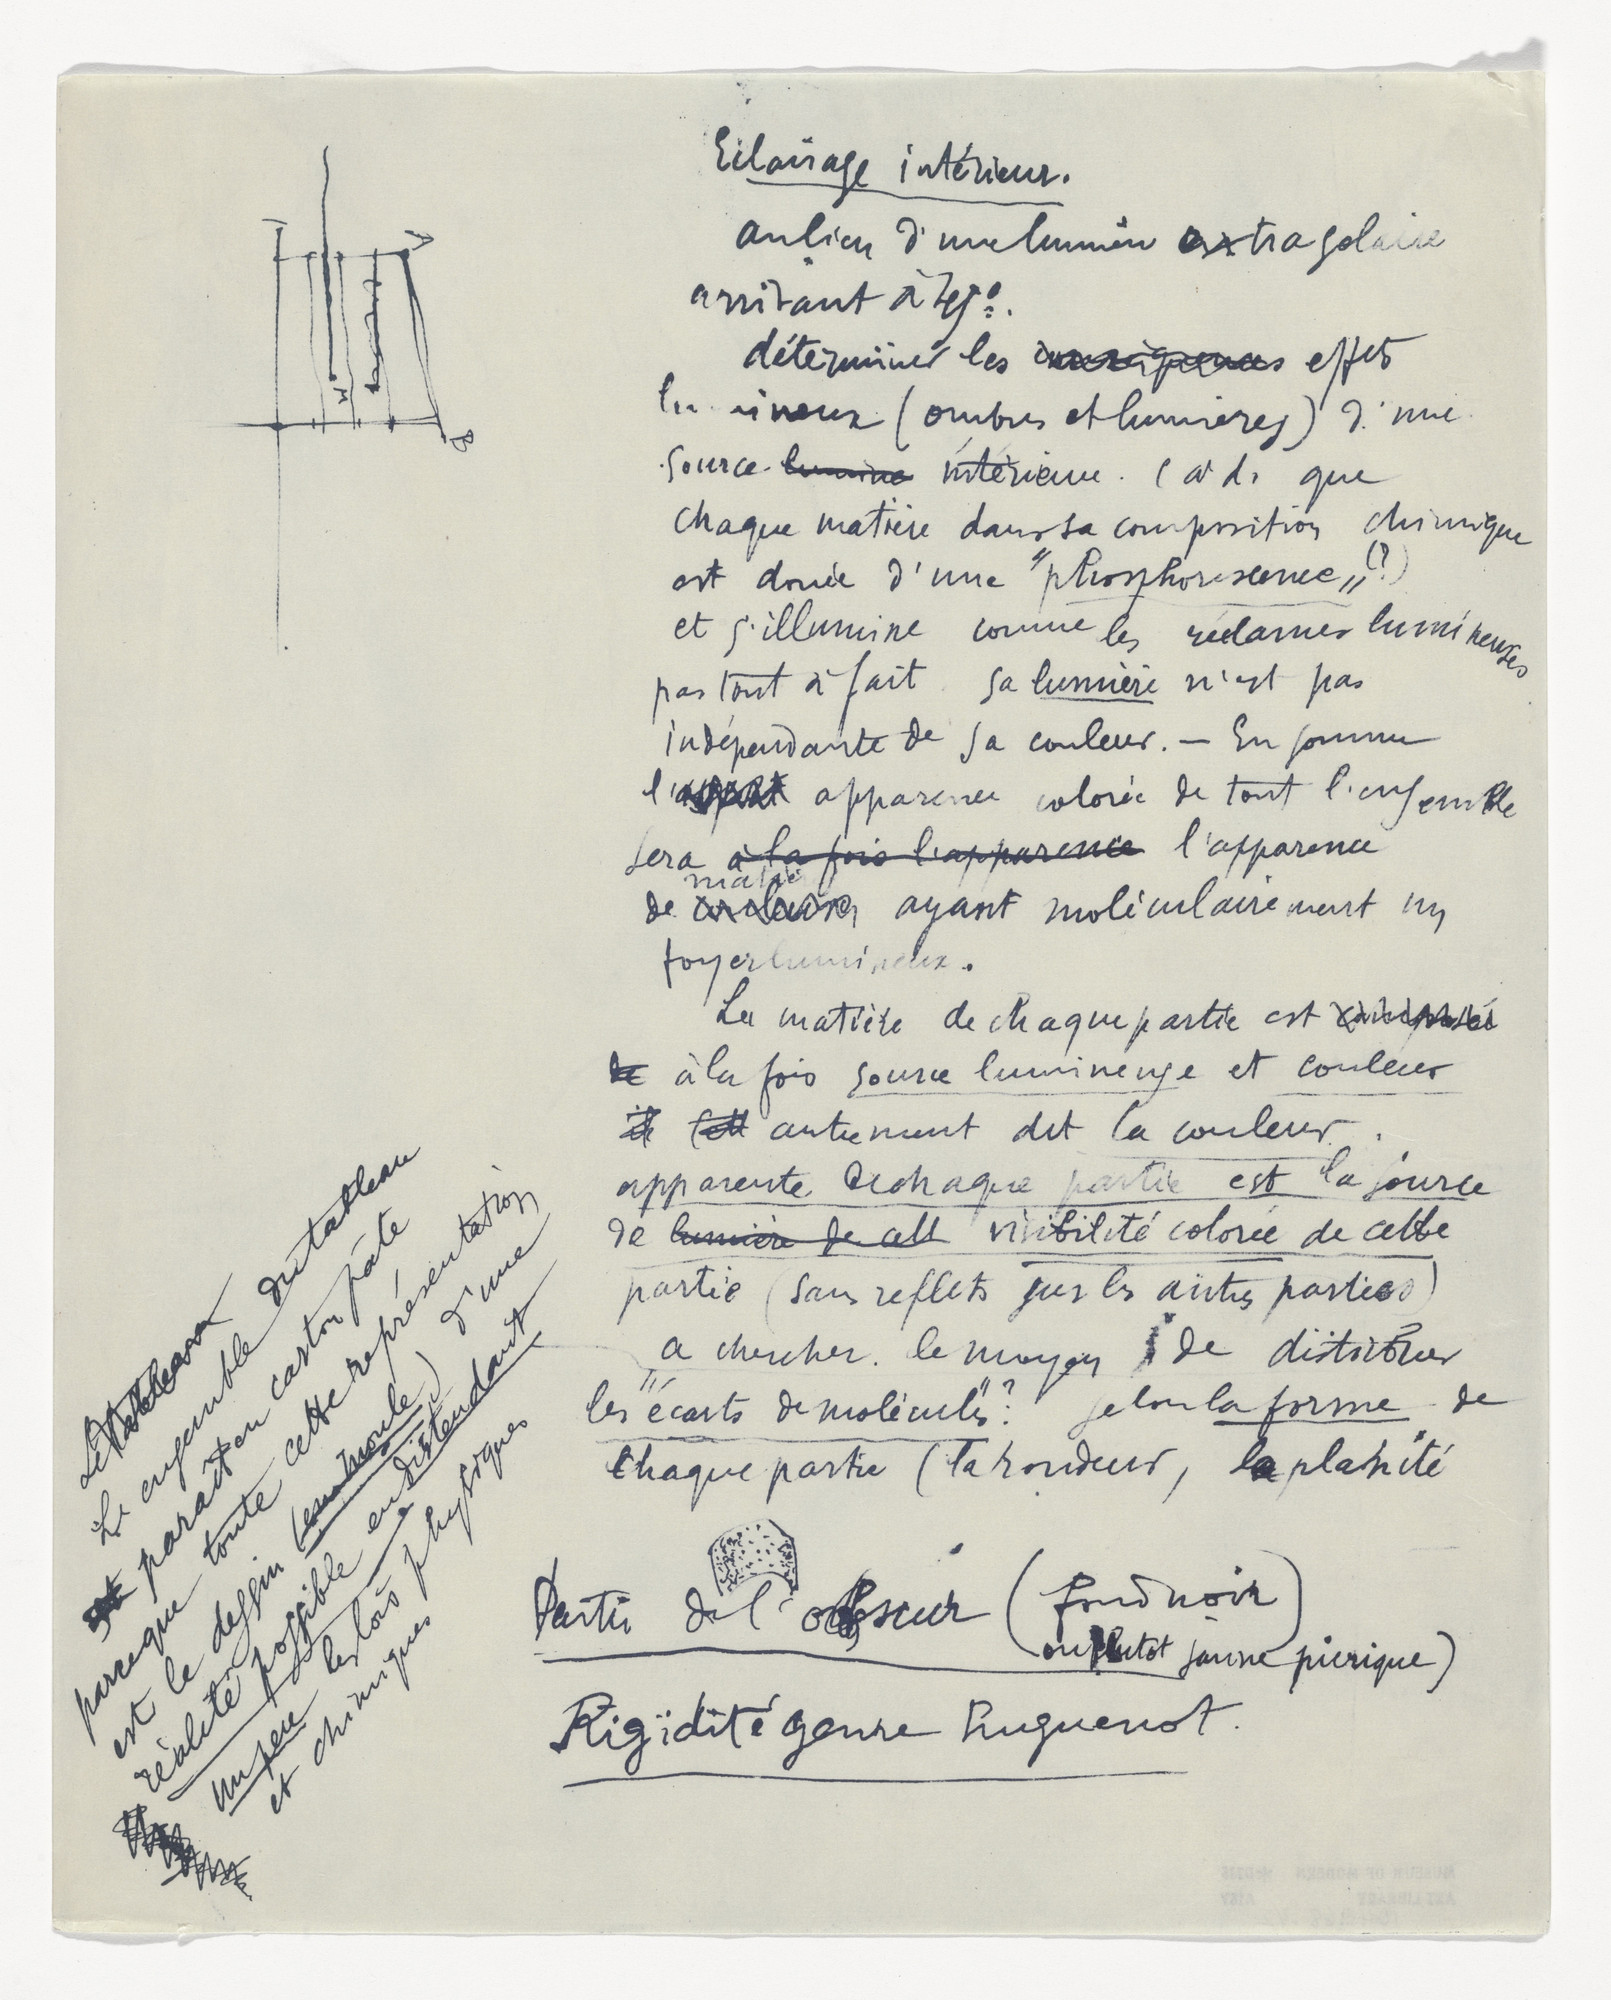 Eclairage intérieur.
au lieu d'une lumière extrasolaire
arrivant à
déterminer les effets
lumineux (ombres et lumières) d'une
source lumine intérieure. (à d. que
chaque matière dans sa composition chimique
est douée d'une "phosphorescence" (?)
et s'illumine comme les réclames lumineuses
pas tout à fait sa lumière n'est pas
indépendante de sa couleur. — En somme
l' apparence colorée de tout l'ensemble
sera à la fois l'apparence l'apparence
matière
de ayant moléculairement un
foyer lumineux.
La matière de chaque partie est
de à la fois source lumineuse et couleur
autrement dit la couleur
apparente de chaque partie est la source
de lumière de cett visibilité colorée de cette
partie (sans reflets sur les autres parties)
a chercher. le moyen de distribuer
les "écarts de molécules"? selon la forme de
chaque partie (la rondeur, la planité
Partir de l'obscur (fond noir
ou plutot jaune picrique)
Rigidité genre huguenot.
Le tableau
Le ensemble du tableau
paraît en carton pâte
parceque toute cette représentation
est le dessin (en moule) d'une
réalité possible en distendant
un peu les lois physiques
et chimiques
A
B